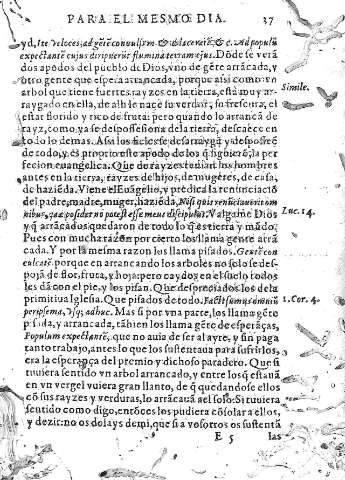 PARA EL MESMO DIA. 37
yd, Ite veloces, ad gētē conuulsam & dilaceratā, & c. ad populū
expectantē cujus diripuerūt flumina terram ejus. Dōde se verā
dos apodos del pueblo de Dios, vno de gēte arrācada, y
otro gente que espera arrancada, porque assi como vn
arbol que tiene fuertes rayzes en la tierra, està muy ar-
Simile.
raygado en ella, de alli le nace su verdor, su frescura, el
estar florido y rico de fruta: pero quando lo arrancā de
rayz, como ya se despossessiona de la tierra, descaece en
todo lo demas. Assi los fieles se desarraygā y desposseē
de todo, y es proprio este apodo de los q̄ siguierō la per
feccion euangelica. Que de rayzes tenian los hombres
antes en la tierra, rayzes de hijos, de mugeres, de casa,
de haziēda. Viene el Euāgelio, y predica la renunciació
del padre, madre, muger, haziēda. Nisi quis renūciauerit om
nibus, quæ possidet nō potest esse meus discipulus. Valgame Dios
Luc. 14.
y q̄ arrācados quedaron de todo lo q̄ es tierra y mūdo.
Pues con mucha razon por cierto los llama gente arrā
cada. Y por la mesma razon los llama pisados. Gentē con
culcatā porque en arrancando los arboles no solo se des-
poja de flor, fruta, y hoja: pero caydos en el suelo todos
les dā con el pie, y los pisan. Que despreciados los de la
primitiua Iglesia. Que pisados de todo. Facti sumus omniū
1. Cor. 4.
peripsema, vsq; adhuc. Mas si por vna parte, los llama gēte
pisada, y arrancada, tābien los llama gēte de esperāças,
Populum expectantē, que no auia de ser al ayre, y sin paga
tanto trabajo, antes lo que los sustentaua para sufrirlos,
era la esperança del premio y dichoso paradero. Que si
tuuiera sentido vn arbol arrancado, y entre los q̄ estauā
en vn vergel vuiera gran llanto, de q̄ quedandose ellos
cō sus rayzes y verduras, lo arrācauā a el solo: Si tuuiera
sentido como digo, entōces los pudiera cōsolar a ellos,
y dezir: no os dolays de mi, que si a vosotros os sustentā
E 5 las